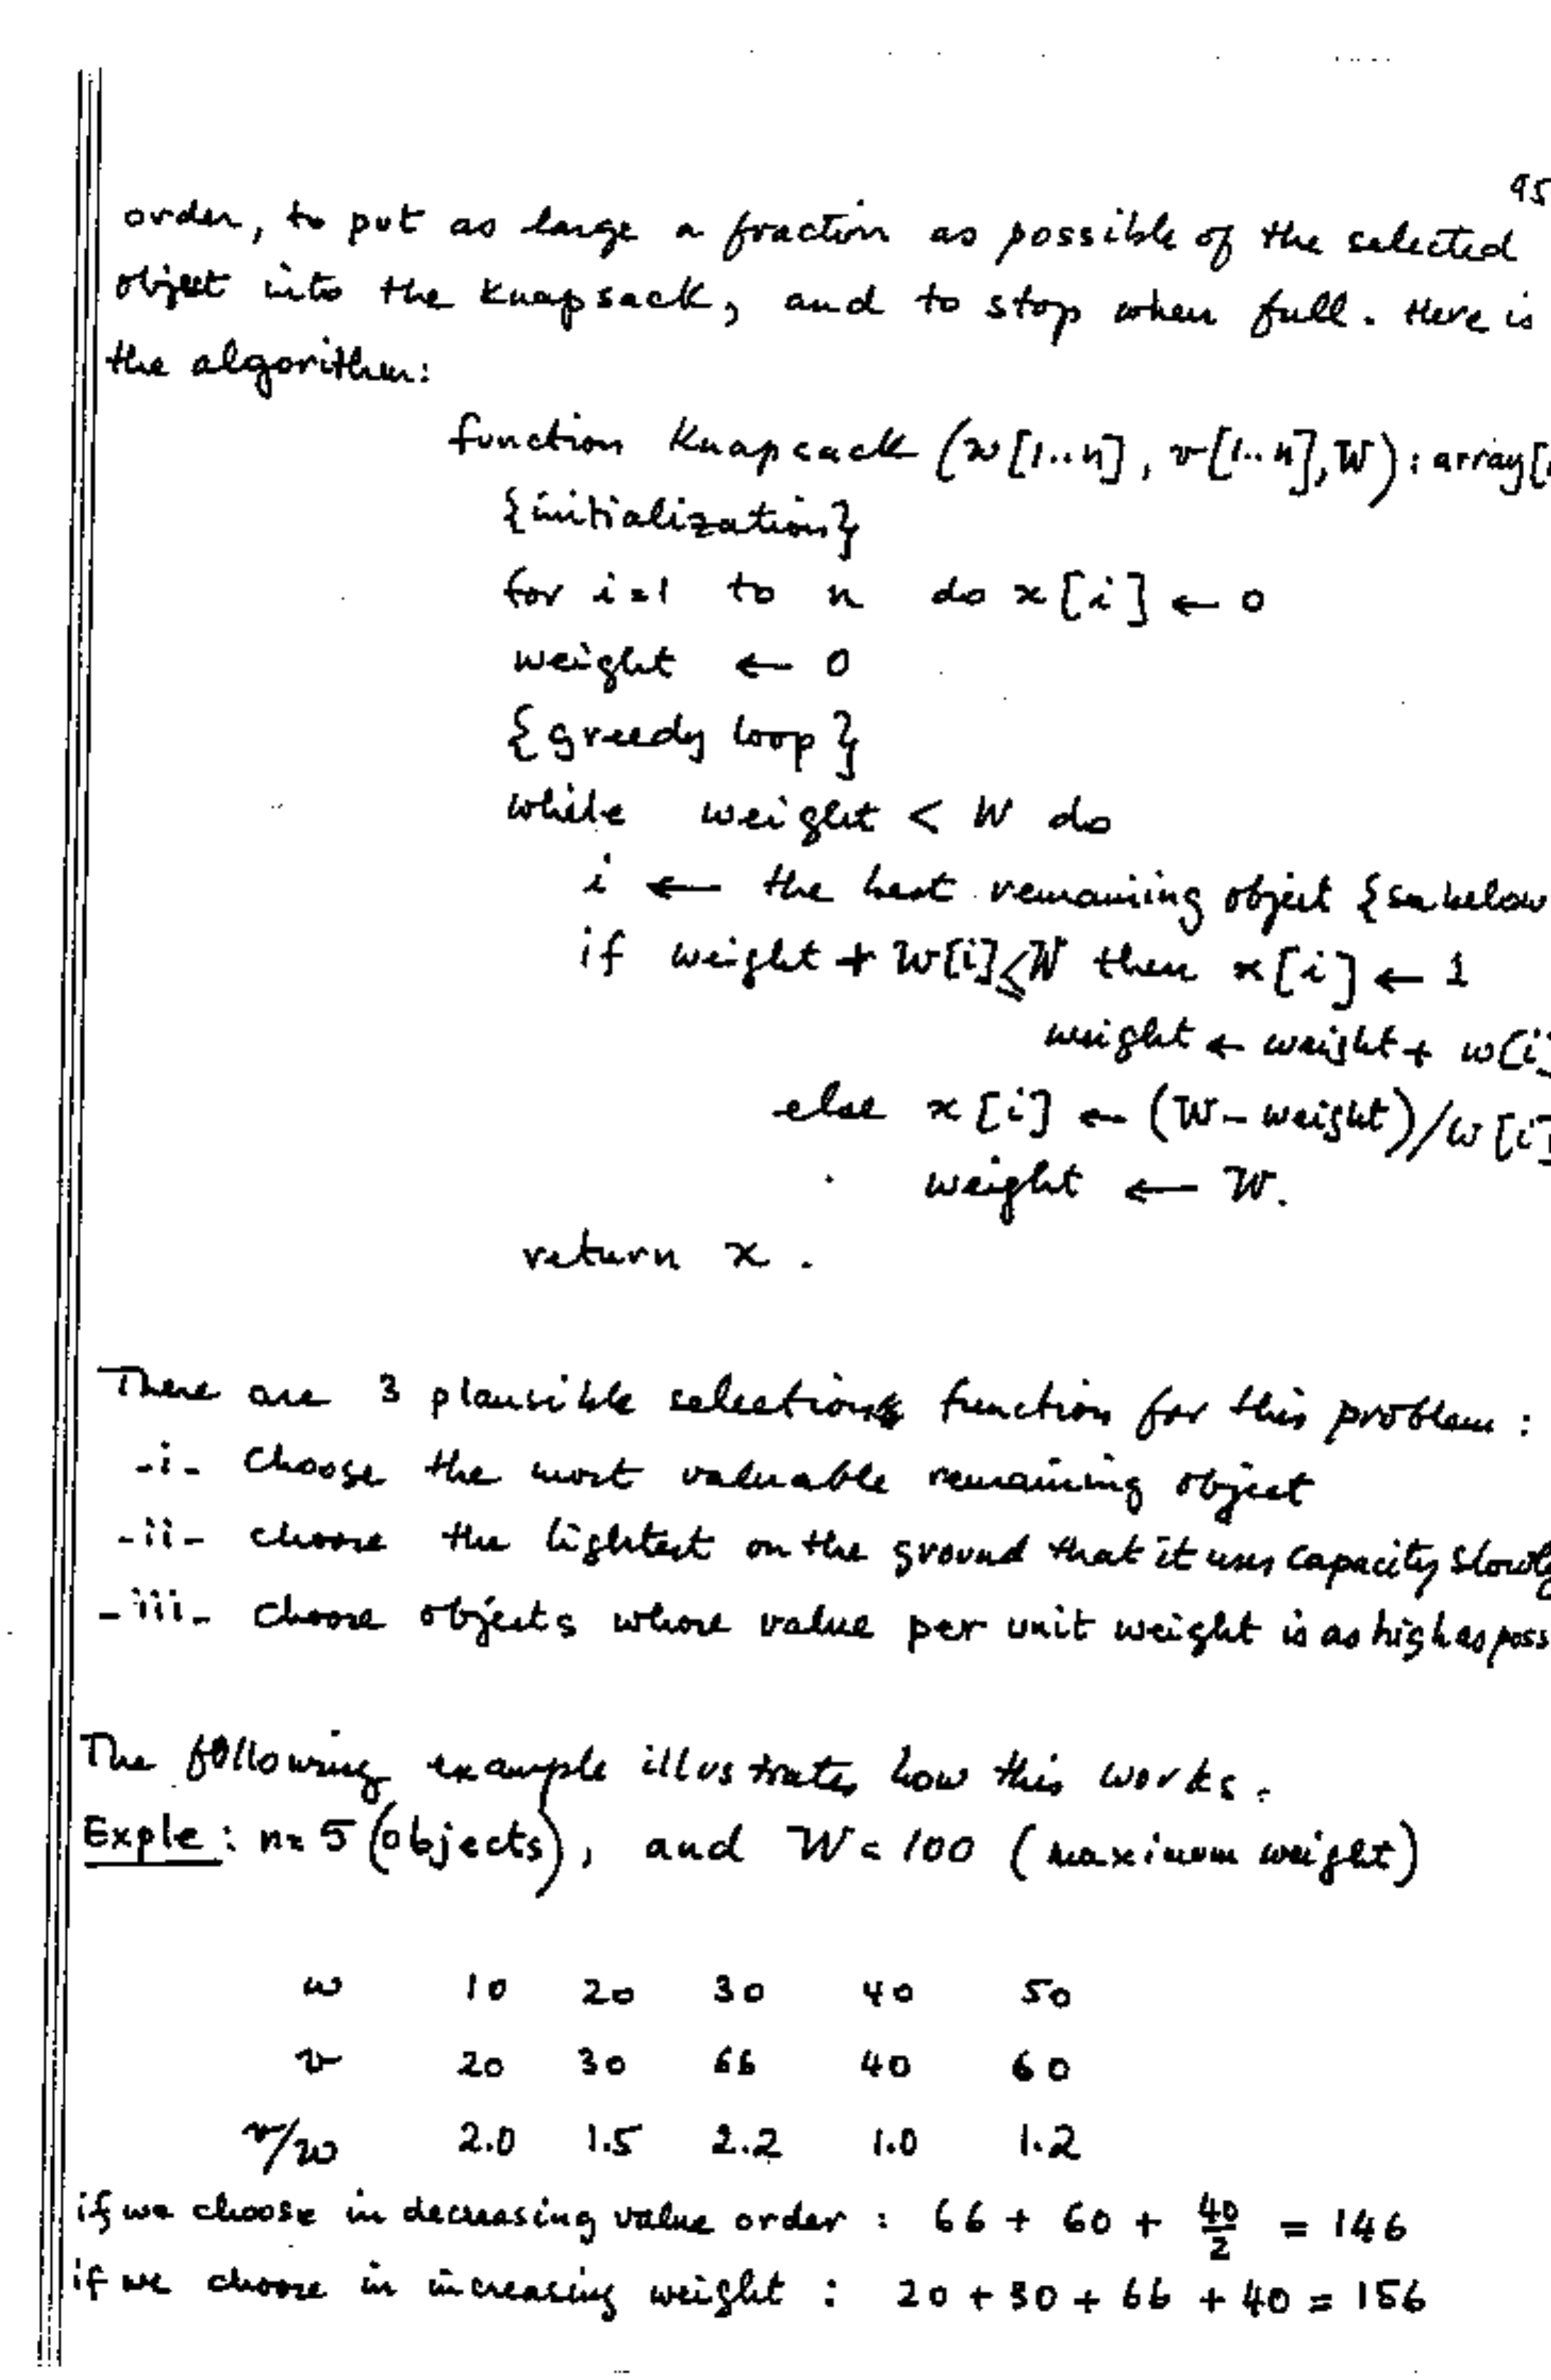 95
order, to put as large a fraction as possible of the selected
object into the knapsack, and to stop when full. Here is
the algorithm:
function Knapsack (w[1..n], v[1..n], W) : array[
{initialization}
for i=1 to n do x[i] ← 0
weight ← 0
{greedy loop}
while weight < W do
i ← the best remaining object {see below
if weight + w[i] ≤ W then x[i] ← 1
weight ← weight + w[i]
else x[i] ← (W - weight)/w[i]
weight ← W.
return x .
There are 3 plausible selection function for this problem :
-i- Choose the most valuable remaining object
-ii- choose the lightest on the ground that it uses capacity slowly
-iii- choose objects whose value per unit weight is as high as poss
The following example illustrates how this works.
Exple : n = 5 (objects), and W = 100 (maximum weight)
w 10 20 30 40 50
v 20 30 66 40 60
v/w 2.0 1.5 2.2 1.0 1.2
if we choose in decreasing value order : 66 + 60 + 40/2 = 146
if we choose in increasing weight : 20 + 30 + 66 + 40 = 156